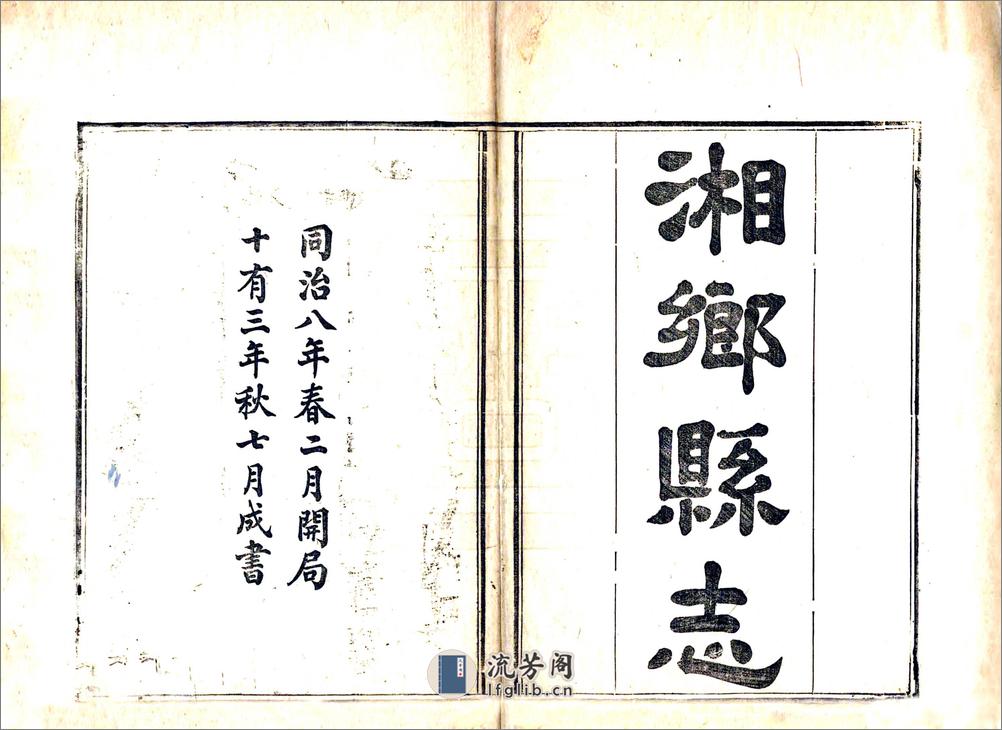 湘鄉縣志
同治八年春二月開局
十有三年秋七月成書
流芳阁
lfglib.cn